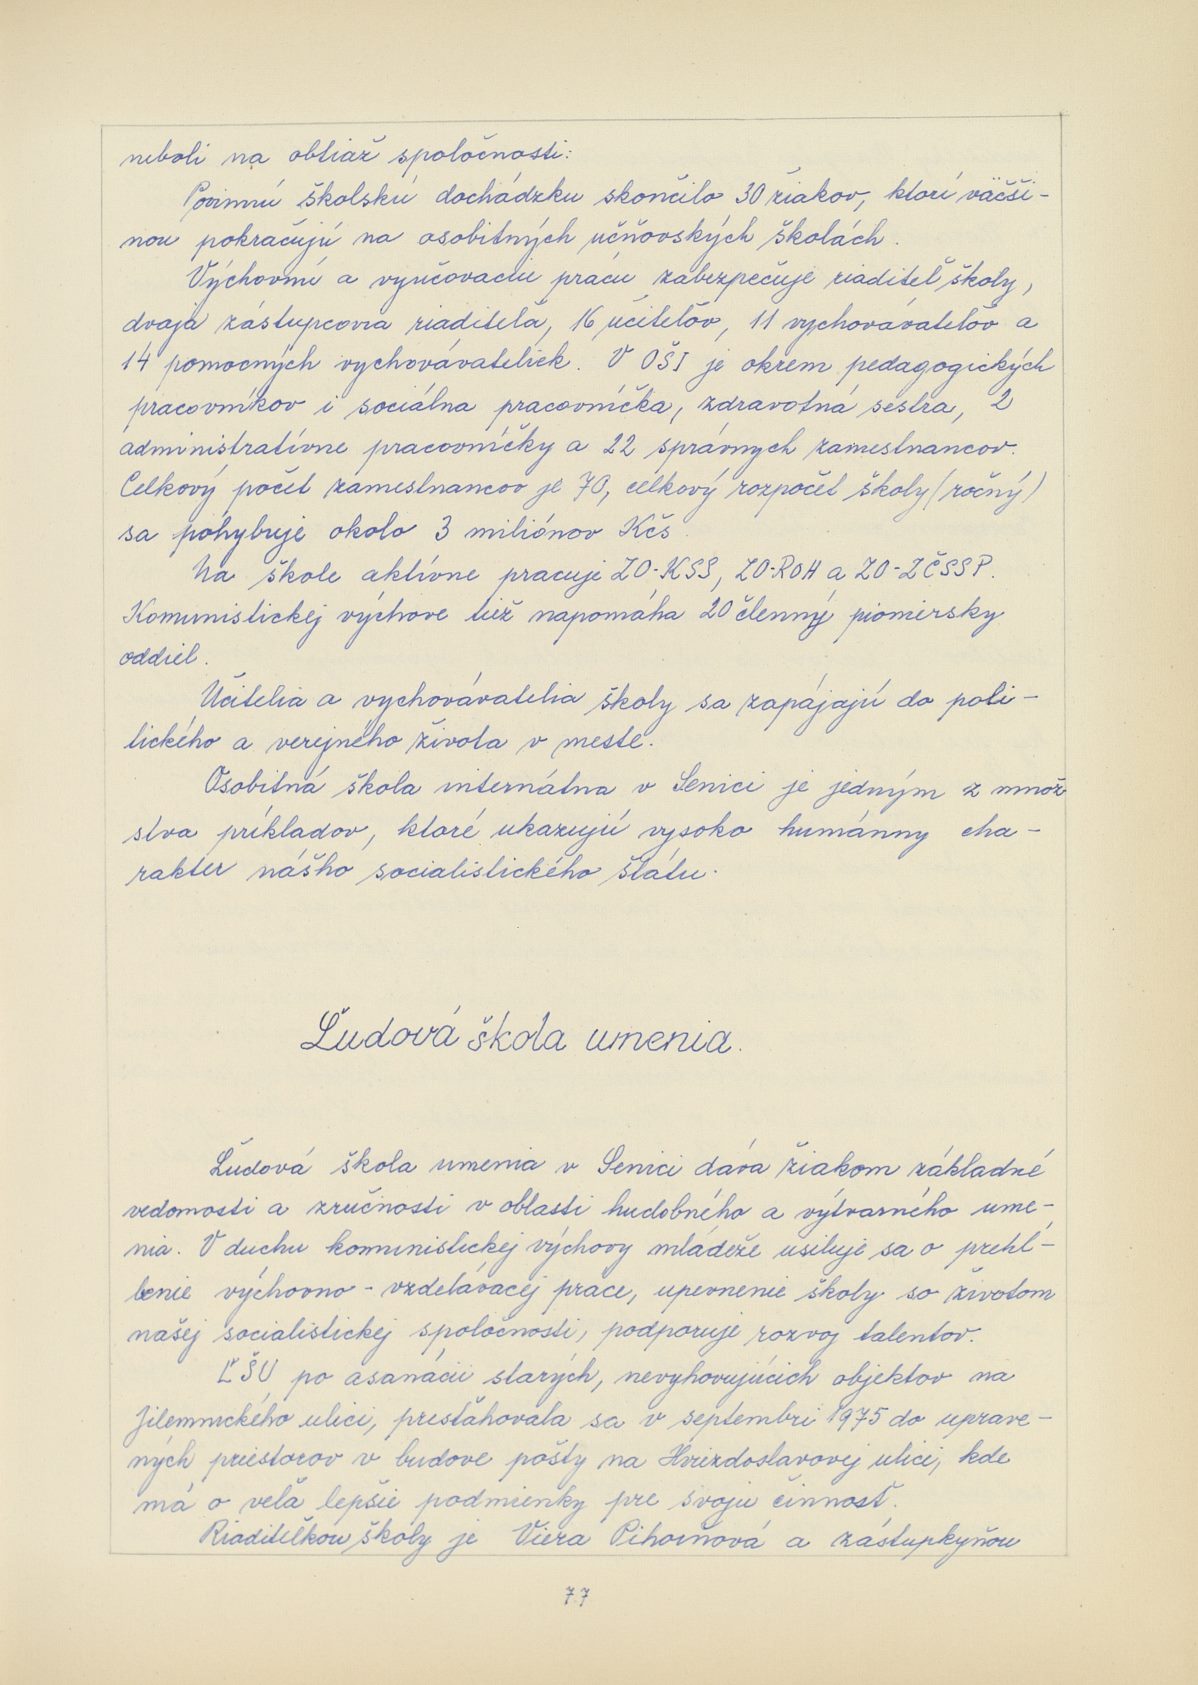 neboli na obtiaž spoločnosti.
Povinnú školskú dochádzku skončilo 30 žiakov, ktorí väčši-
nou pokračujú na osobitných učňovských školách.
Výchovnú a vyučovaciu prácu zabezpečuje riaditeľ školy,
dvaja zástupcovia riaditeľa, 16 učiteľov, 11 vychovávateľov a
14 pomocných vychovávateliek. V OŠI je okrem pedagogických
pracovníkov i sociálna pracovníčka, zdravotná sestra, 2
administratívne pracovníčky a 22 správnych zamestnancov.
Celkový počet zamestnancov je 70, celkový rozpočet školy (ročný)
sa pohybuje okolo 3 miliónov Kčs.
Na škole aktívne pracuje ZO-KSS, ZO-ROH a ZO-ZČSSP.
Komunistickej výchove tiež napomáha 20 členný pioniersky
oddiel.
Učitelia a vychovávatelia školy sa zapájajú do poli-
tického a verejného života v meste.
Osobitná škola internátna v Senici je jedným z množ
stva príkladov, ktoré ukazujú vysoko humánny cha-
rakter nášho socialistického štátu.
Ľudová škola umenia.
Ľudová škola umenia v Senici dáva žiakom základné
vedomosti a zručnosti v oblasti hudobného a výtvarného ume-
nia. V duchu komunistickej výchovy mládeže usiluje sa o prehĺ-
benie výchovno-vzdelávacej práce, upevnenie školy so životom
našej socialistickej spoločnosti, podporuje rozvoj talentov.
ĽŠU po asanácii starých, nevyhovujúcich objektov na
Jilemnického ulici, presťahovala sa v septembri 1975 do uprave-
ných priestorov v budove pošty na Hviezdoslavovej ulici, kde
má o veľa lepšie podmienky pre svoju činnosť.
Riaditeľkou školy je Viera Pihorňová a zástupkyňou
77